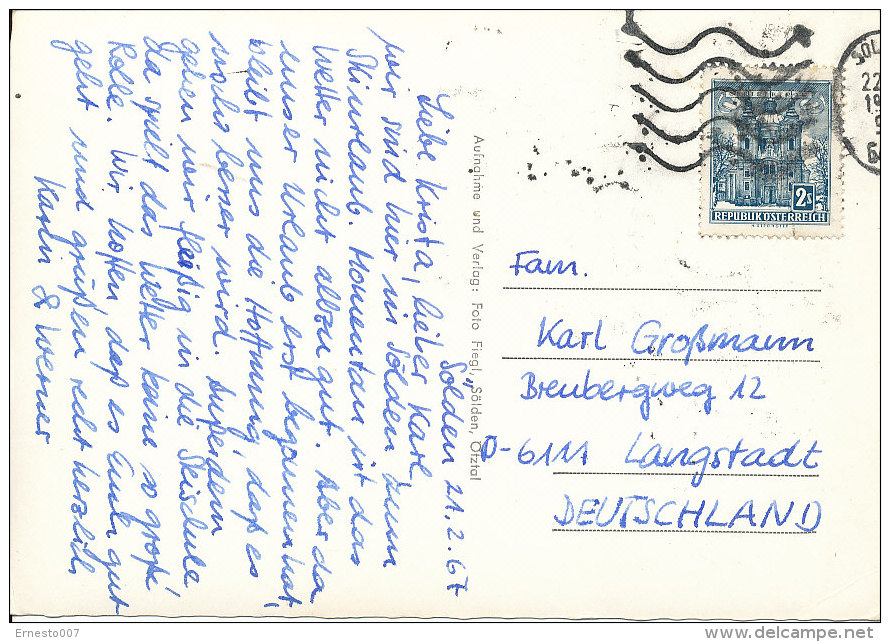 Sölden 21.2.67
Liebe Krista, lieber Karl,
wir sind hier in Sölden zum
Skiurlaub. Momentan ist das
Wetter nicht allzu gut. Aber da
unser Urlaub erst begonnen hat,
bleibt uns die Hoffnung, daß es
noch besser wird. Außerdem
gehen wir fleißig in die Skischule
Da spielt das Wetter keine so große
Rolle. Wir hoffen daß es Euch gut
geht und grüßen recht herzlich
Karlin & Werner
Aufnahme und Verlag: Foto Fiegl, Sölden, Ötztal
SÖL
22
2s
REPUBLIK ÖSTERREICH
Fam.
Karl Großmann
Breubergweg 12
D-6111 Langstadt
DEUTSCHLAND
Ernesto007
delcampe.net